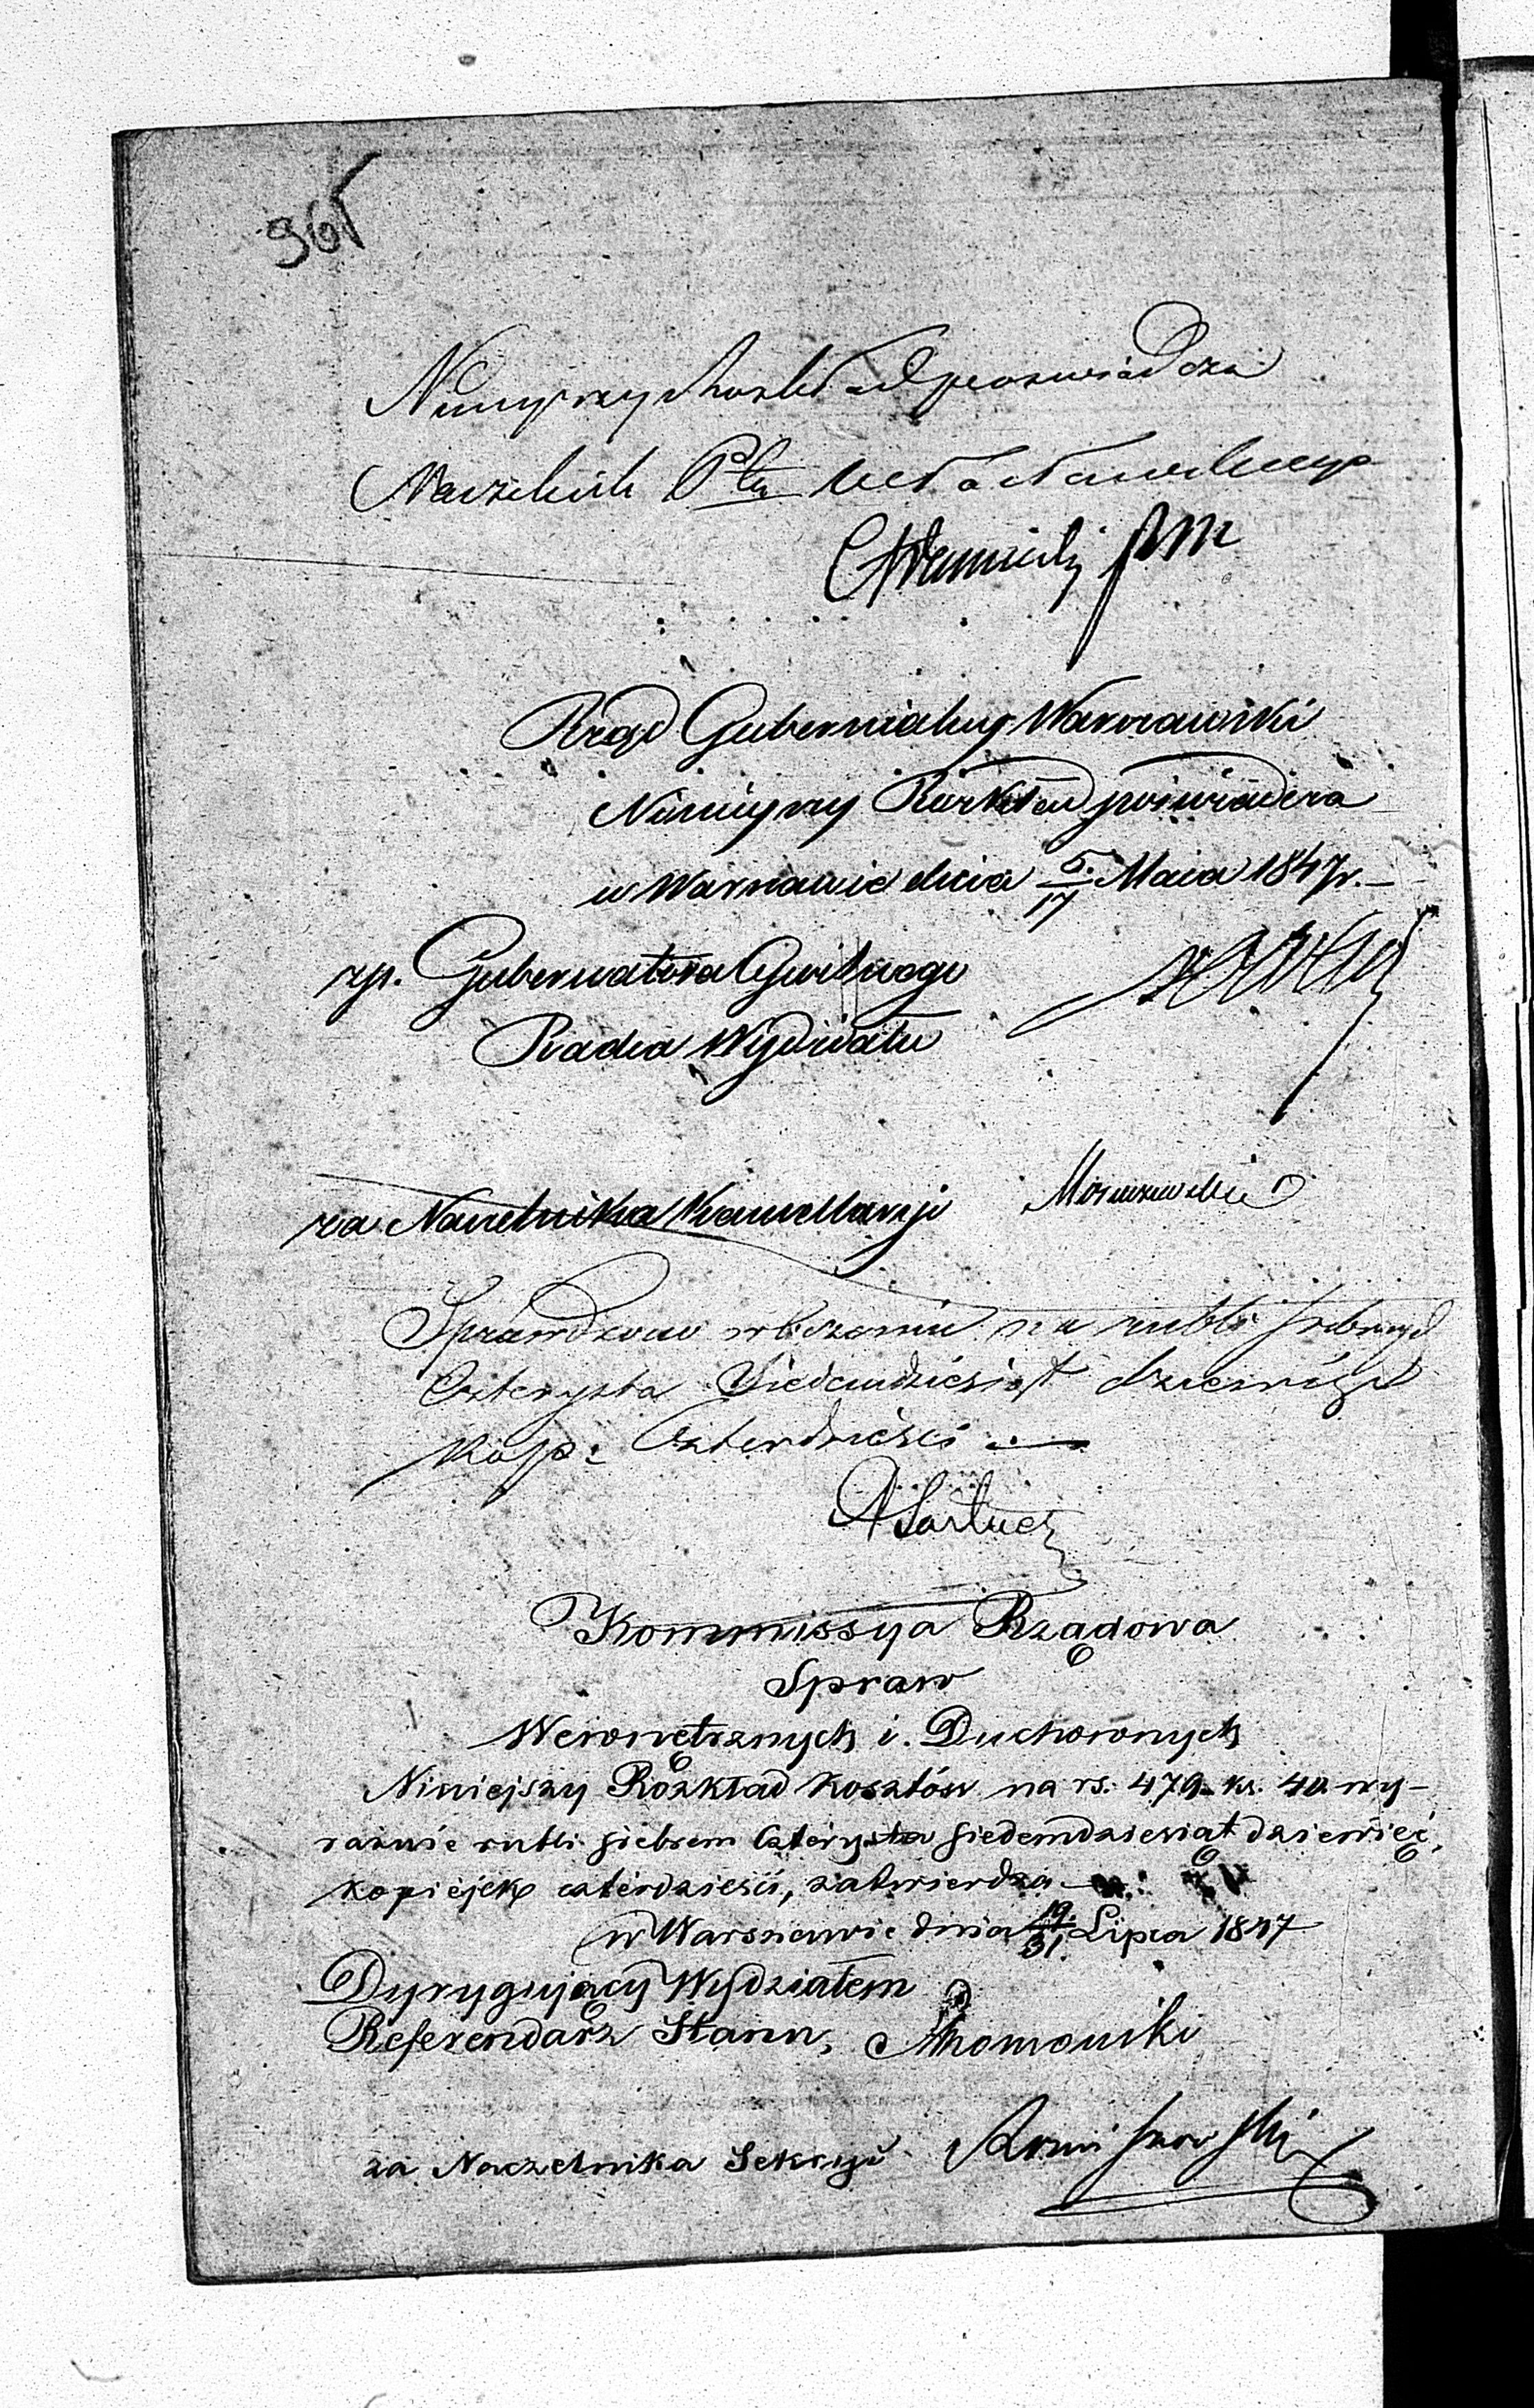 965
Niniejszy Rozkład poświadcza
Naczelnik Ptu
Rząd Gubernialny Warszawski
Niniejszy Rozkład poświadcza
w Warszawie dnia 5/17 Maia 1847 r. —
zp. Gubernatora Cywilnego
Radca Wydziału
za Naczelnika Kancellaryi
Sprawdzono w liczeniu na rubli srebrnych
Czterysta Siedemdziesiąt dziewięć
kop: Czterdzieści
Kommissya Rządowa
Spraw
Wewnętrznych i Duchownych
Niniejszy Rozkład kosztów na rs. 479 k. 40 wy-
raźnie rubli srebrem czterysta siedemdziesiąt dziewięć,
kopiejek czterdzieści, zatwierdza
w Warszawie dnia 19/31 Lipca 1847
Dyrygujący Wydziałem
Referendarz Stanu,
za Naczelnika Sekcyi